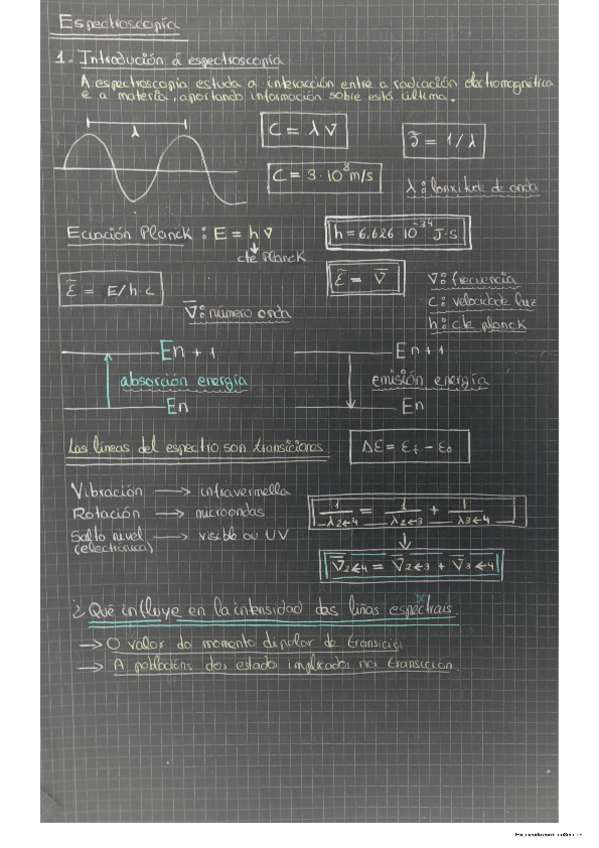 Espectroscopía
1. Introdución á espectroscopía
A espectroscopía estuda a interacción entre a radiación electromagnética
e a materia, aportando información sobre está última.
λ
C = λ ν
ν̃ = 1/λ
C = 3·10⁸ m/s
λ: lonxitude de onda
Ecuación Planck: E = h ν
h = 6,626·10⁻³⁴ J·s
cte Planck
ε̃ = E/h·c
ε̃ = ν̅
ν: frecuencia
ν̅: número onda
c: velocidade luz
h: cte planck
En + 1
En + 1
absorción energía
emisión energía
En
En
Las líneas del espectro son transicions
ΔE = εf - ε0
Vibración → infravermella
Rotación → microondas
Salto nivel → visible ou UV
(electrónica)
1/λ2←4 = 1/λ2←3 + 1/λ3←4
↓
ν̅2←4 = ν̅2←3 + ν̅3←4
¿Qué influye en la intensidad das liñas espectrais
→ O valor do momento dipolar de transició
→ A poblacións dos estado implicados na transición.